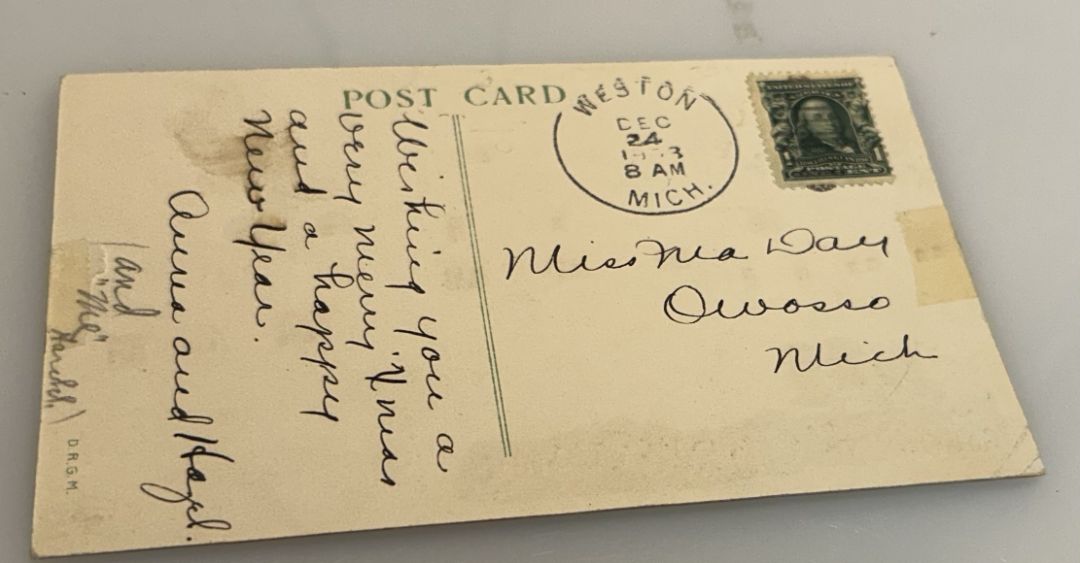 POST CARD
WESTON
DEC
24
8 AM
MICH.
UNITED STATES OF
1
POSTAGE
CENT
Miss Ma Day
Owosso
Mich
Wishing you a
very merry Xmas
and a happy
New Year.
Anna and Hazel.
(and
"Me"
D.R.G.M.